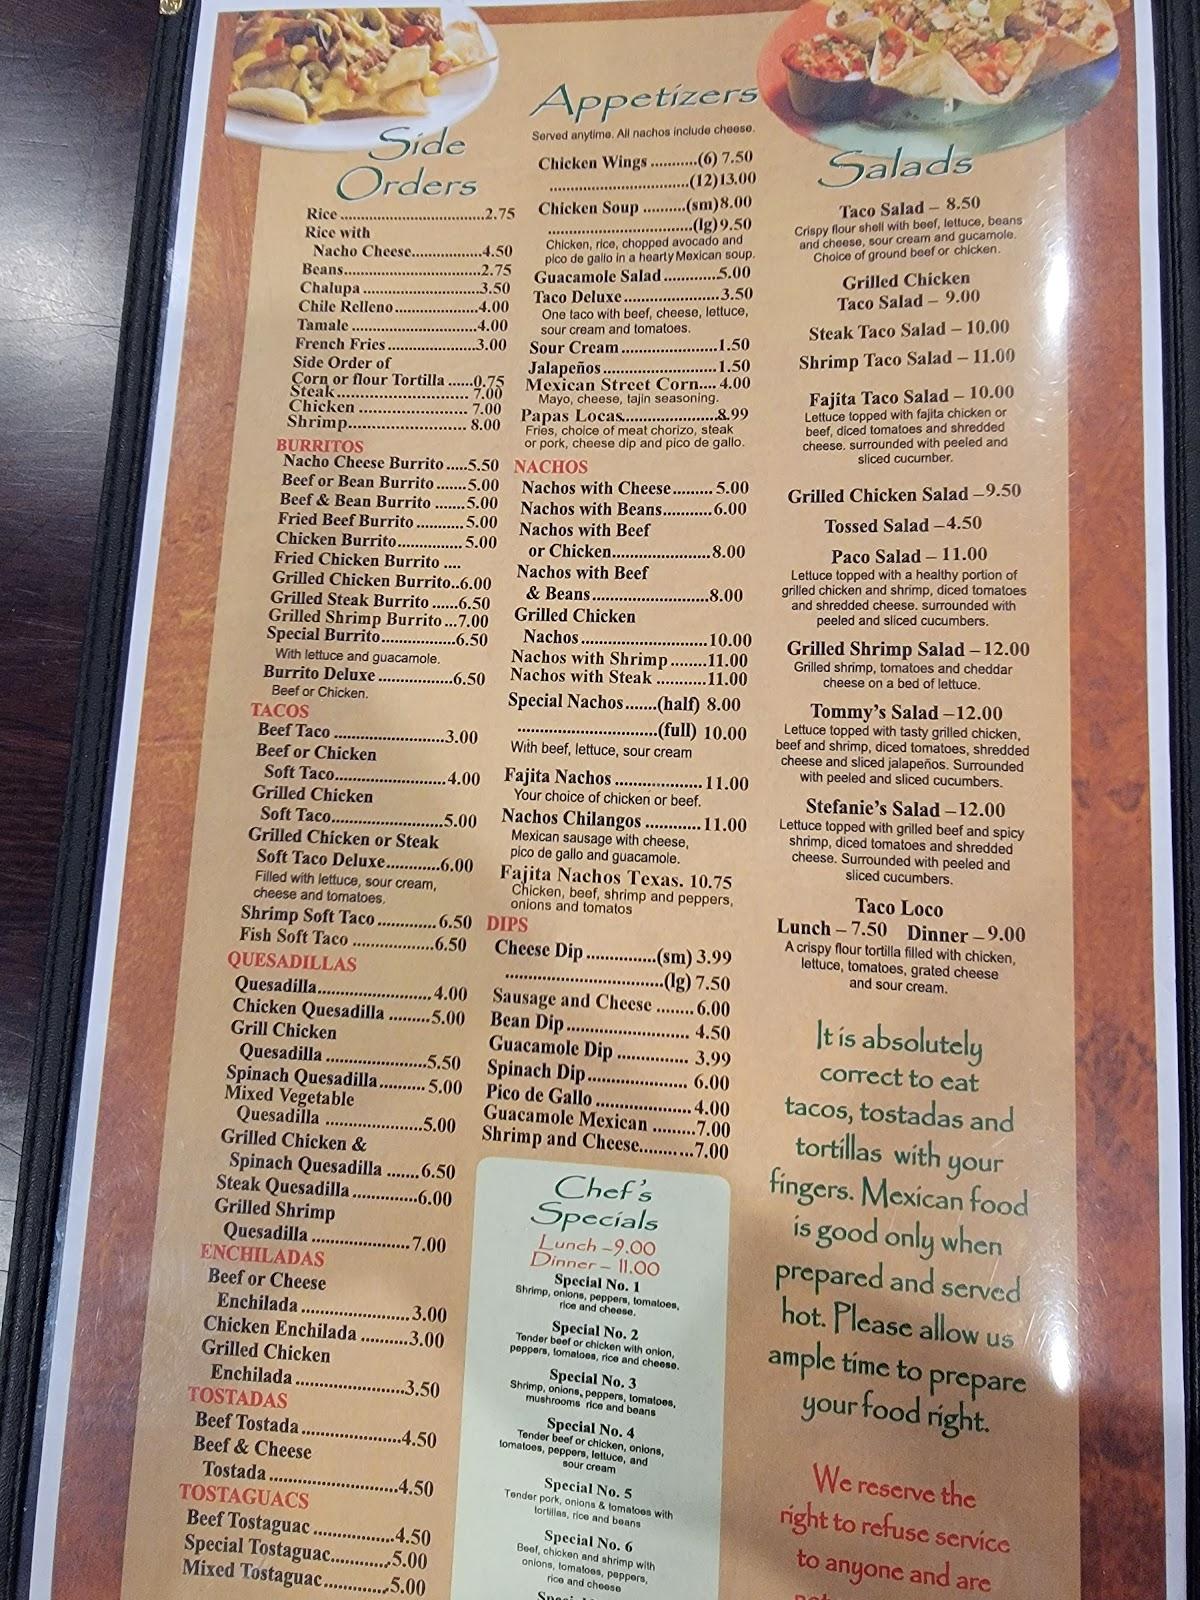 Side
Orders
Rice ..................................2.75
Rice with
Nacho Cheese.................4.50
Beans.................................2.75
Chalupa ............................3.50
Chile Relleno....................4.00
Tamale ..............................4.00
French Fries.....................3.00
Side Order of
Corn or flour Tortilla ......0.75
Steak................................ 7.00
Chicken .......................... 7.00
Shrimp............................ 8.00
BURRITOS
Nacho Cheese Burrito.....5.50
Beef or Bean Burrito.......5.00
Beef & Bean Burrito .......5.00
Fried Beef Burrito ...........5.00
Chicken Burrito...............5.00
Fried Chicken Burrito ....
Grilled Chicken Burrito..6.00
Grilled Steak Burrito ......6.50
Grilled Shrimp Burrito ...7.00
Special Burrito.................6.50
With lettuce and guacamole.
Burrito Deluxe .................6.50
Beef or Chicken.
TACOS
Beef Taco .........................3.00
Beef or Chicken
Soft Taco.........................4.00
Grilled Chicken
Soft Taco.........................5.00
Grilled Chicken or Steak
Soft Taco Deluxe............6.00
Filled with lettuce, sour cream,
cheese and tomatoes.
Shrimp Soft Taco .............6.50
Fish Soft Taco ..................6.50
QUESADILLAS
Quesadilla.........................4.00
Chicken Quesadilla .........5.00
Grill Chicken
Quesadilla ......................5.50
Spinach Quesadilla..........5.00
Mixed Vegetable
Quesadilla ......................5.00
Grilled Chicken &
Spinach Quesadilla .......6.50
Steak Quesadilla..............6.00
Grilled Shrimp
Quesadilla ......................7.00
ENCHILADAS
Beef or Cheese
Enchilada ........................3.00
Chicken Enchilada ..........3.00
Grilled Chicken
Enchilada ........................3.50
TOSTADAS
Beef Tostada .....................4.50
Beef & Cheese
Tostada ............................4.50
TOSTAGUACS
Beef Tostaguac .................4.50
Special Tostaguac.............5.00
Mixed Tostaguac..............5.00
Appetizers
Served anytime. All nachos include cheese.
Chicken Wings ...........(6) 7.50
.................................(12)13.00
Chicken Soup ..........(sm)8.00
..................................(lg)9.50
Chicken, rice, chopped avocado and
pico de gallo in a hearty Mexican soup.
Guacamole Salad .............5.00
Taco Deluxe ......................3.50
One taco with beef, cheese, lettuce,
sour cream and tomatoes.
Sour Cream.......................1.50
Jalapeños...........................1.50
Mexican Street Corn.... 4.00
Mayo, cheese, tajin seasoning.
Papas Locas......................8.99
Fries, choice of meat chorizo, steak
or pork, cheese dip and pico de gallo.
NACHOS
Nachos with Cheese......... 5.00
Nachos with Beans...........6.00
Nachos with Beef
or Chicken.......................8.00
Nachos with Beef
& Beans...........................8.00
Grilled Chicken
Nachos ............................10.00
Nachos with Shrimp ........11.00
Nachos with Steak ...........11.00
Special Nachos.......(half) 8.00
...............................(full) 10.00
With beef, lettuce, sour cream
Fajita Nachos ....................11.00
Your choice of chicken or beef.
Nachos Chilangos ............11.00
Mexican sausage with cheese,
pico de gallo and guacamole.
Fajita Nachos Texas. 10.75
Chicken, beef, shrimp and peppers,
onions and tomatos
DIPS
Cheese Dip ...............(sm) 3.99
....................................(lg) 7.50
Sausage and Cheese ........6.00
Bean Dip........................... 4.50
Guacamole Dip ............... 3.99
Spinach Dip..................... 6.00
Pico de Gallo ....................4.00
Guacamole Mexican .........7.00
Shrimp and Cheese...........7.00
Chef's
Specials
Lunch –9.00
Dinner – 11.00
Special No. 1
Shrimp, onions, peppers, tomatoes,
rice and cheese.
Special No. 2
Tender beef or chicken with onion,
peppers, tomatoes, rice and cheese.
Special No. 3
Shrimp, onions, peppers, tomatoes,
mushrooms rice and beans
Special No. 4
Tender beef or chicken, onions,
tomatoes, peppers, lettuce, and
sour cream
Special No. 5
Tender pork, onions & tomatoes with
tortillas, rice and beans
Special No. 6
Beef, chicken and shrimp with
onions, tomatoes, peppers,
rice and cheese
Salads
Taco Salad – 8.50
Crispy flour shell with beef, lettuce, beans
and cheese, sour cream and gucamole.
Choice of ground beef or chicken.
Grilled Chicken
Taco Salad – 9.00
Steak Taco Salad – 10.00
Shrimp Taco Salad – 11.00
Fajita Taco Salad – 10.00
Lettuce topped with fajita chicken or
beef, diced tomatoes and shredded
cheese. surrounded with peeled and
sliced cucumber.
Grilled Chicken Salad –9.50
Tossed Salad –4.50
Paco Salad – 11.00
Lettuce topped with a healthy portion of
grilled chicken and shrimp, diced tomatoes
and shredded cheese. surrounded with
peeled and sliced cucumbers.
Grilled Shrimp Salad – 12.00
Grilled shrimp, tomatoes and cheddar
cheese on a bed of lettuce.
Tommy's Salad –12.00
Lettuce topped with tasty grilled chicken,
beef and shrimp, diced tomatoes, shredded
cheese and sliced jalapeños. Surrounded
with peeled and sliced cucumbers.
Stefanie's Salad –12.00
Lettuce topped with grilled beef and spicy
shrimp, diced tomatoes and shredded
cheese. Surrounded with peeled and
sliced cucumbers.
Taco Loco
Lunch – 7.50 Dinner –9.00
A crispy flour tortilla filled with chicken,
lettuce, tomatoes, grated cheese
and sour cream.
It is absolutely
correct to eat
tacos, tostadas and
tortillas with your
fingers. Mexican food
is good only when
prepared and served
hot. Please allow us
ample time to prepare
your food right.
We reserve the
right to refuse service
to anyone and are